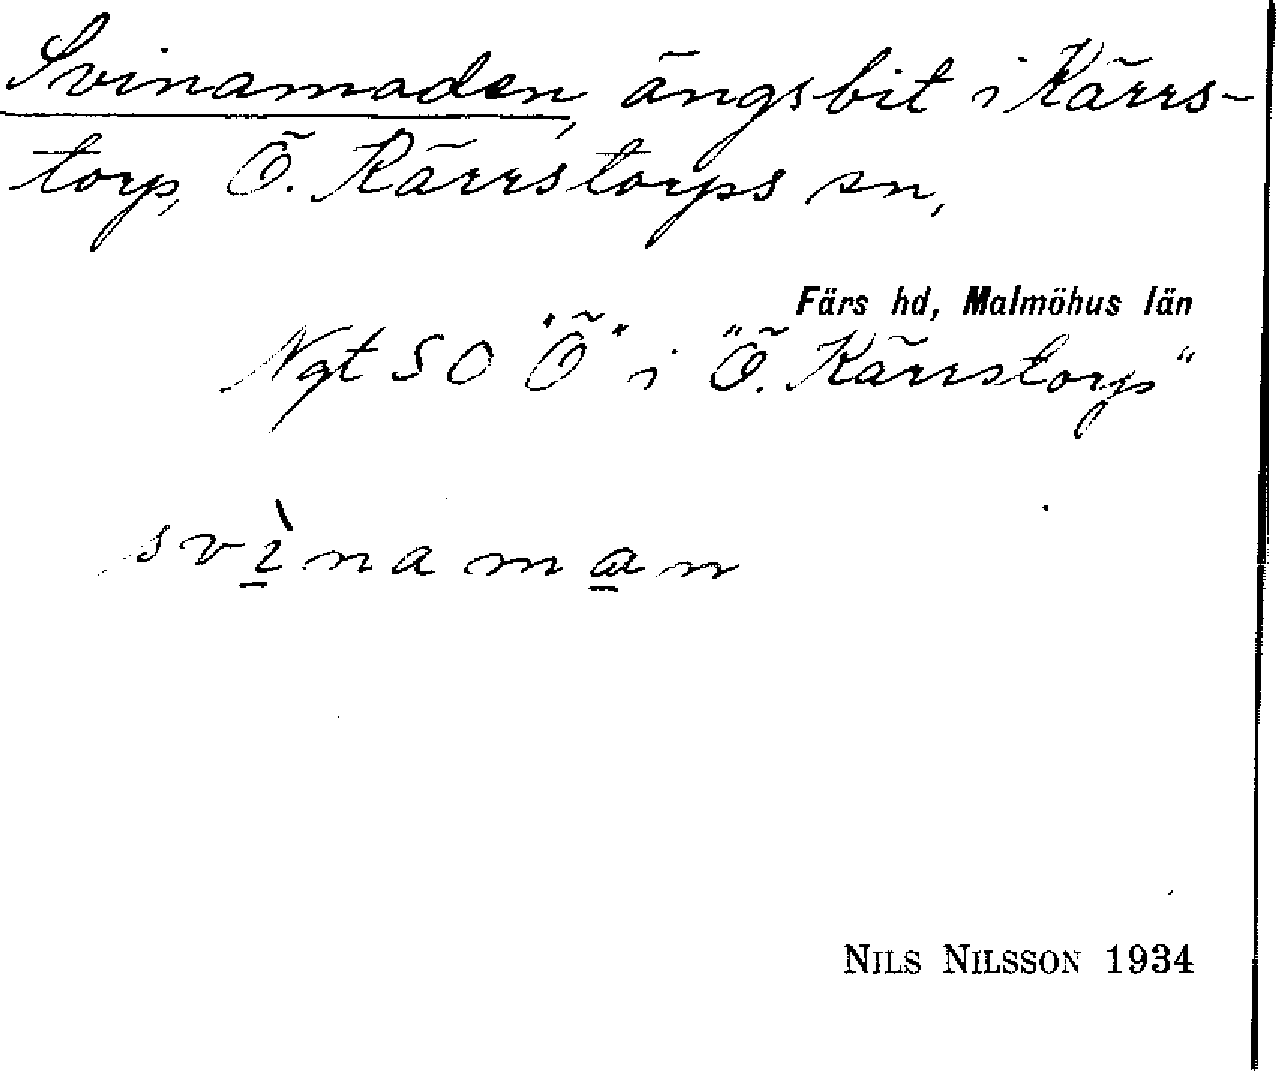 Svinamaden, ängsbit i Kärrs-
torp, Ö. Kärrstorps sn,
Färs hd, Malmöhus län
Ngt SO "Ö" i "Ö. Kärrstorp"
svìnaman
NILS NILSSON 1934